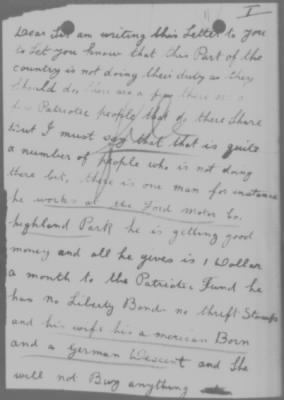 I
Dear Sir am writing this Letter to you
to Let you know that this Part of the
country is not doing their duty as they
should do, there are a few there are a
few Patriotic people that do there share
but I must say that that is quite
a number of people who is not doing
there bit, there is one man for instance
he works at the Ford Motor Co.
highland Park he is getting good
money and all he gives is 1 Dollar
a month to the Patriotic Fund he
has no Liberty Bonds no thrift Stamps
and his wife his a merican Born
and a German Descent and She
will not Buy anything